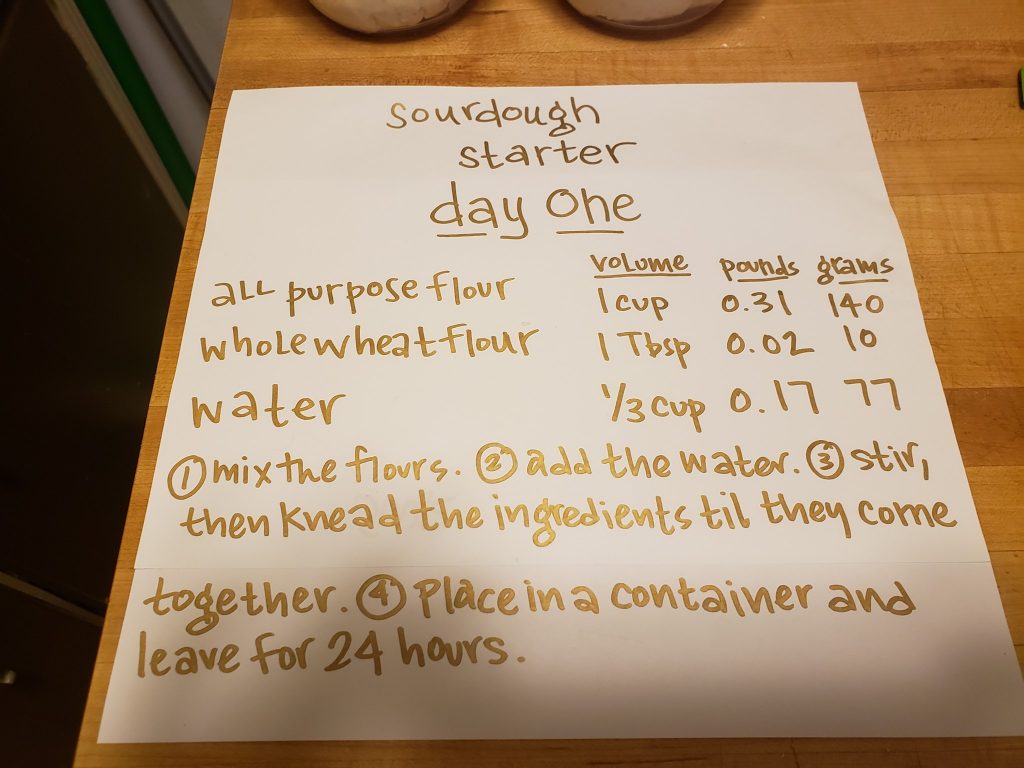 sourdough
starter
day one
volume pounds grams
all purpose flour 1 cup 0.31 140
whole wheat flour 1 Tbsp 0.02 10
water 1/3 cup 0.17 77
① mix the flours. ② add the water. ③ stir,
then knead the ingredients til they come
together. ④ Place in a container and
leave for 24 hours.